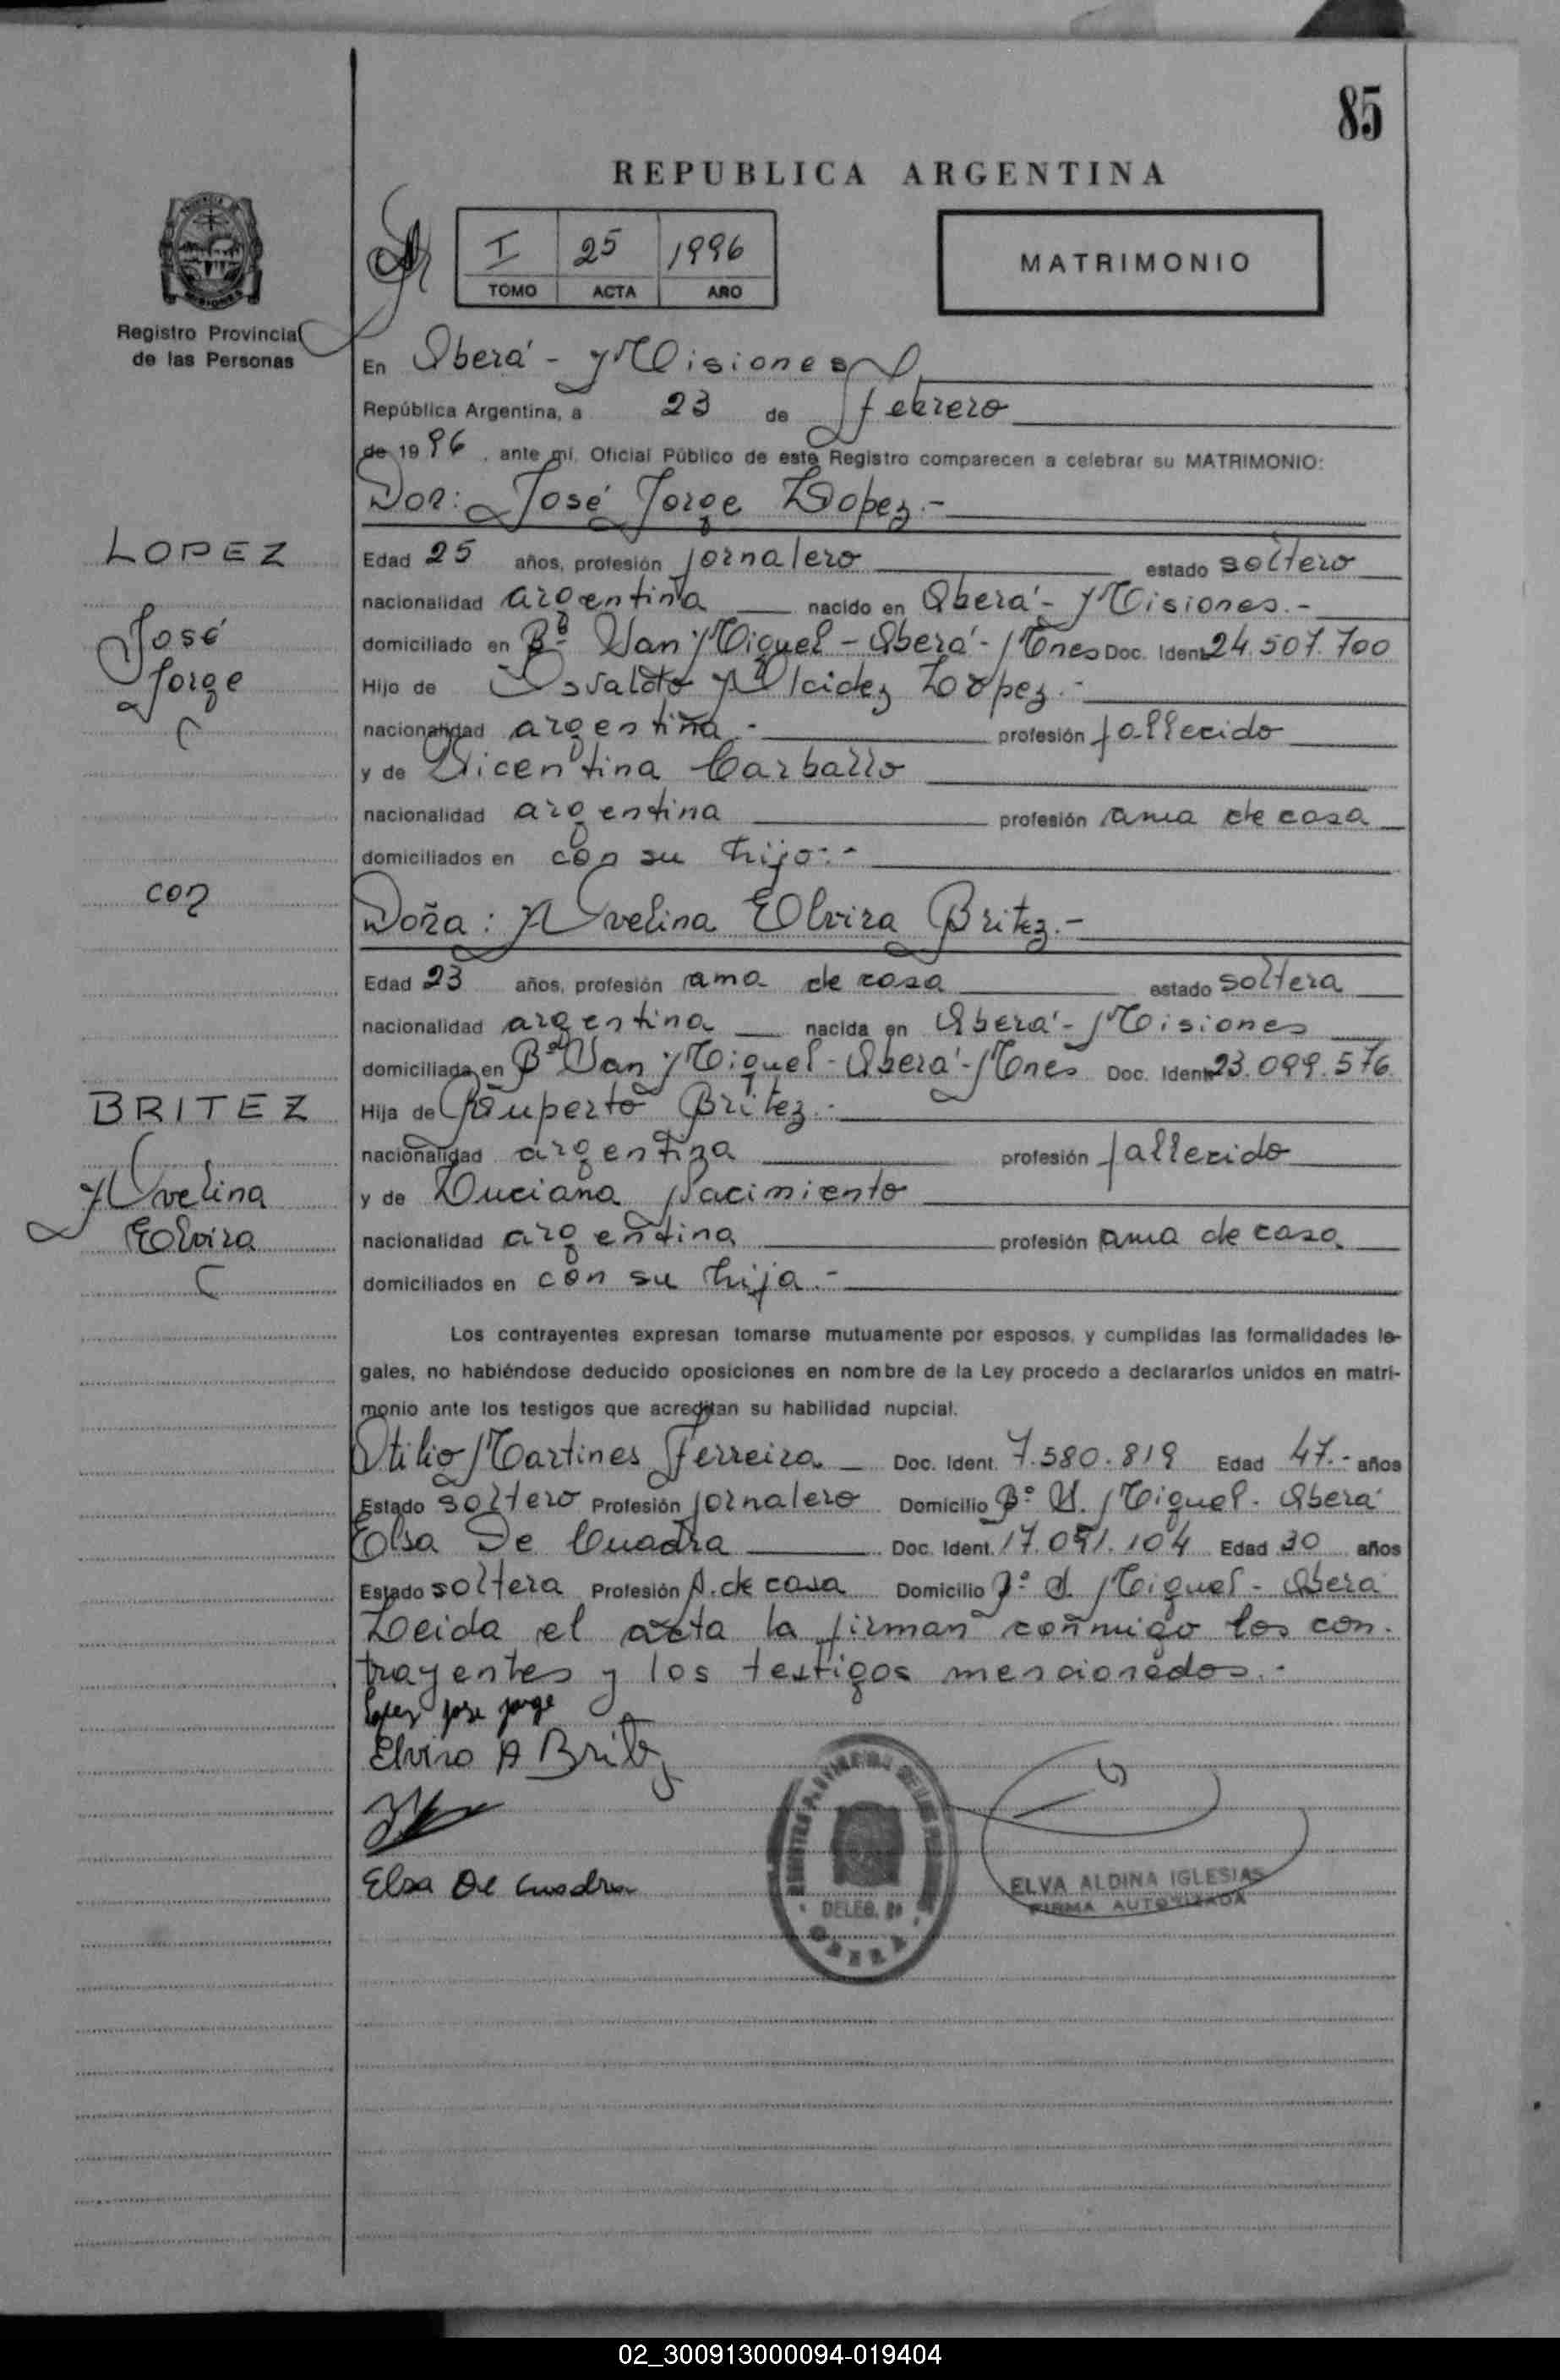 85
REPUBLICA ARGENTINA
I 25 1996
TOMO ACTA AÑO
MATRIMONIO
Registro Provincial
de las Personas
En Oberá - Misiones
República Argentina, a 23 de febrero
de 1996, ante mí, Oficial Público de este Registro comparecen a celebrar su MATRIMONIO:
Don: José Jorge Lopez.-
LOPEZ
Edad 25 años, profesión jornalero estado soltero
nacionalidad argentina nacido en Oberá - Misiones.-
José
domiciliado en Bº San Miguel - Oberá - Mnes Doc. Ident. 24.507.700
Jorge
Hijo de Osvaldo Alcidez Lopez.-
nacionalidad argentina.- profesión fallecido
y de Vicentina Carballo
nacionalidad argentina profesión ama de casa
domiciliados en con su hijo.-
con
Doña: Avelina Elvira Britez.-
Edad 23 años, profesión ama de casa estado soltera
nacionalidad argentina nacida en Oberá - Misiones
domiciliada en Bº San Miguel - Oberá - Mnes Doc. Ident. 23.099.576
BRITEZ
Hija de Ruperto Britez.-
nacionalidad argentina profesión fallecido
Avelina
y de Luciana Nacimiento
Elvira
nacionalidad argentina profesión ama de casa
domiciliados en con su hija.-
Los contrayentes expresan tomarse mutuamente por esposos, y cumplidas las formalidades le-
gales, no habiéndose deducido oposiciones en nombre de la Ley procedo a declararlos unidos en matri-
monio ante los testigos que acreditan su habilidad nupcial.
Otilio Martines Ferreira Doc. Ident. 7.580.819 Edad 47.- años
Estado soltero Profesión jornalero Domicilio Bº S. Miguel - Oberá
Elsa De Cuadra Doc. Ident. 17.091.104 Edad 30 años
Estado soltera Profesión A. de casa Domicilio Bº S. Miguel - Oberá
Leida el acta la firman conmigo los con-
trayentes y los testigos mencionados.-
Lopez jose jorge
Elvira A Britez
Elsa De Cuadra
DELEG.
OBERA
ELVA ALDINA IGLESIAS
FIRMA AUTORIZADA
02_300913000094-019404